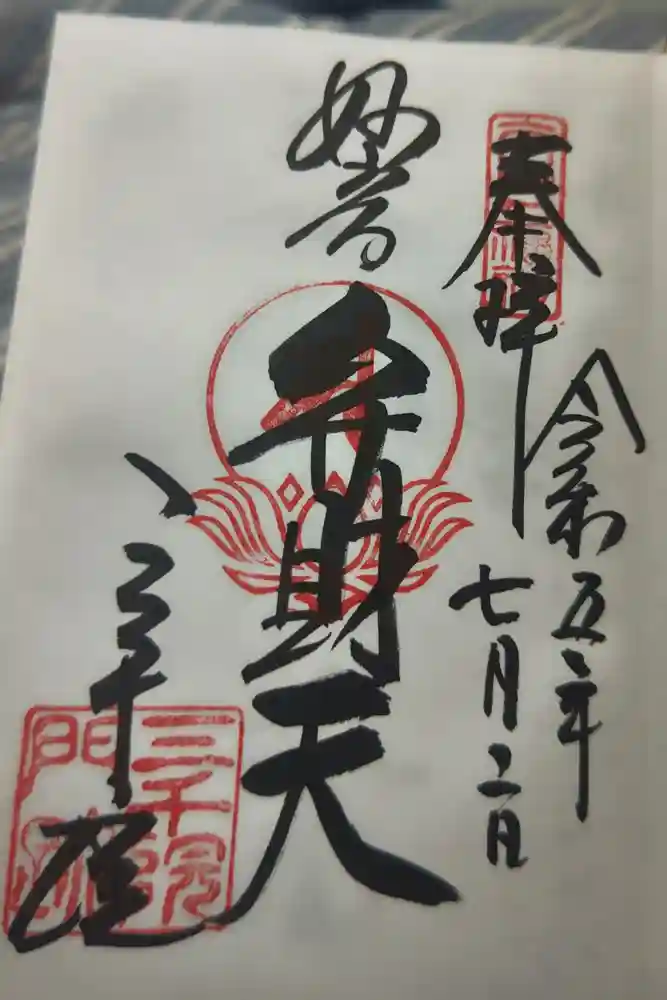 奉拝
令和五年
七月二日
妙音
弁財天
三千院
三千院
門